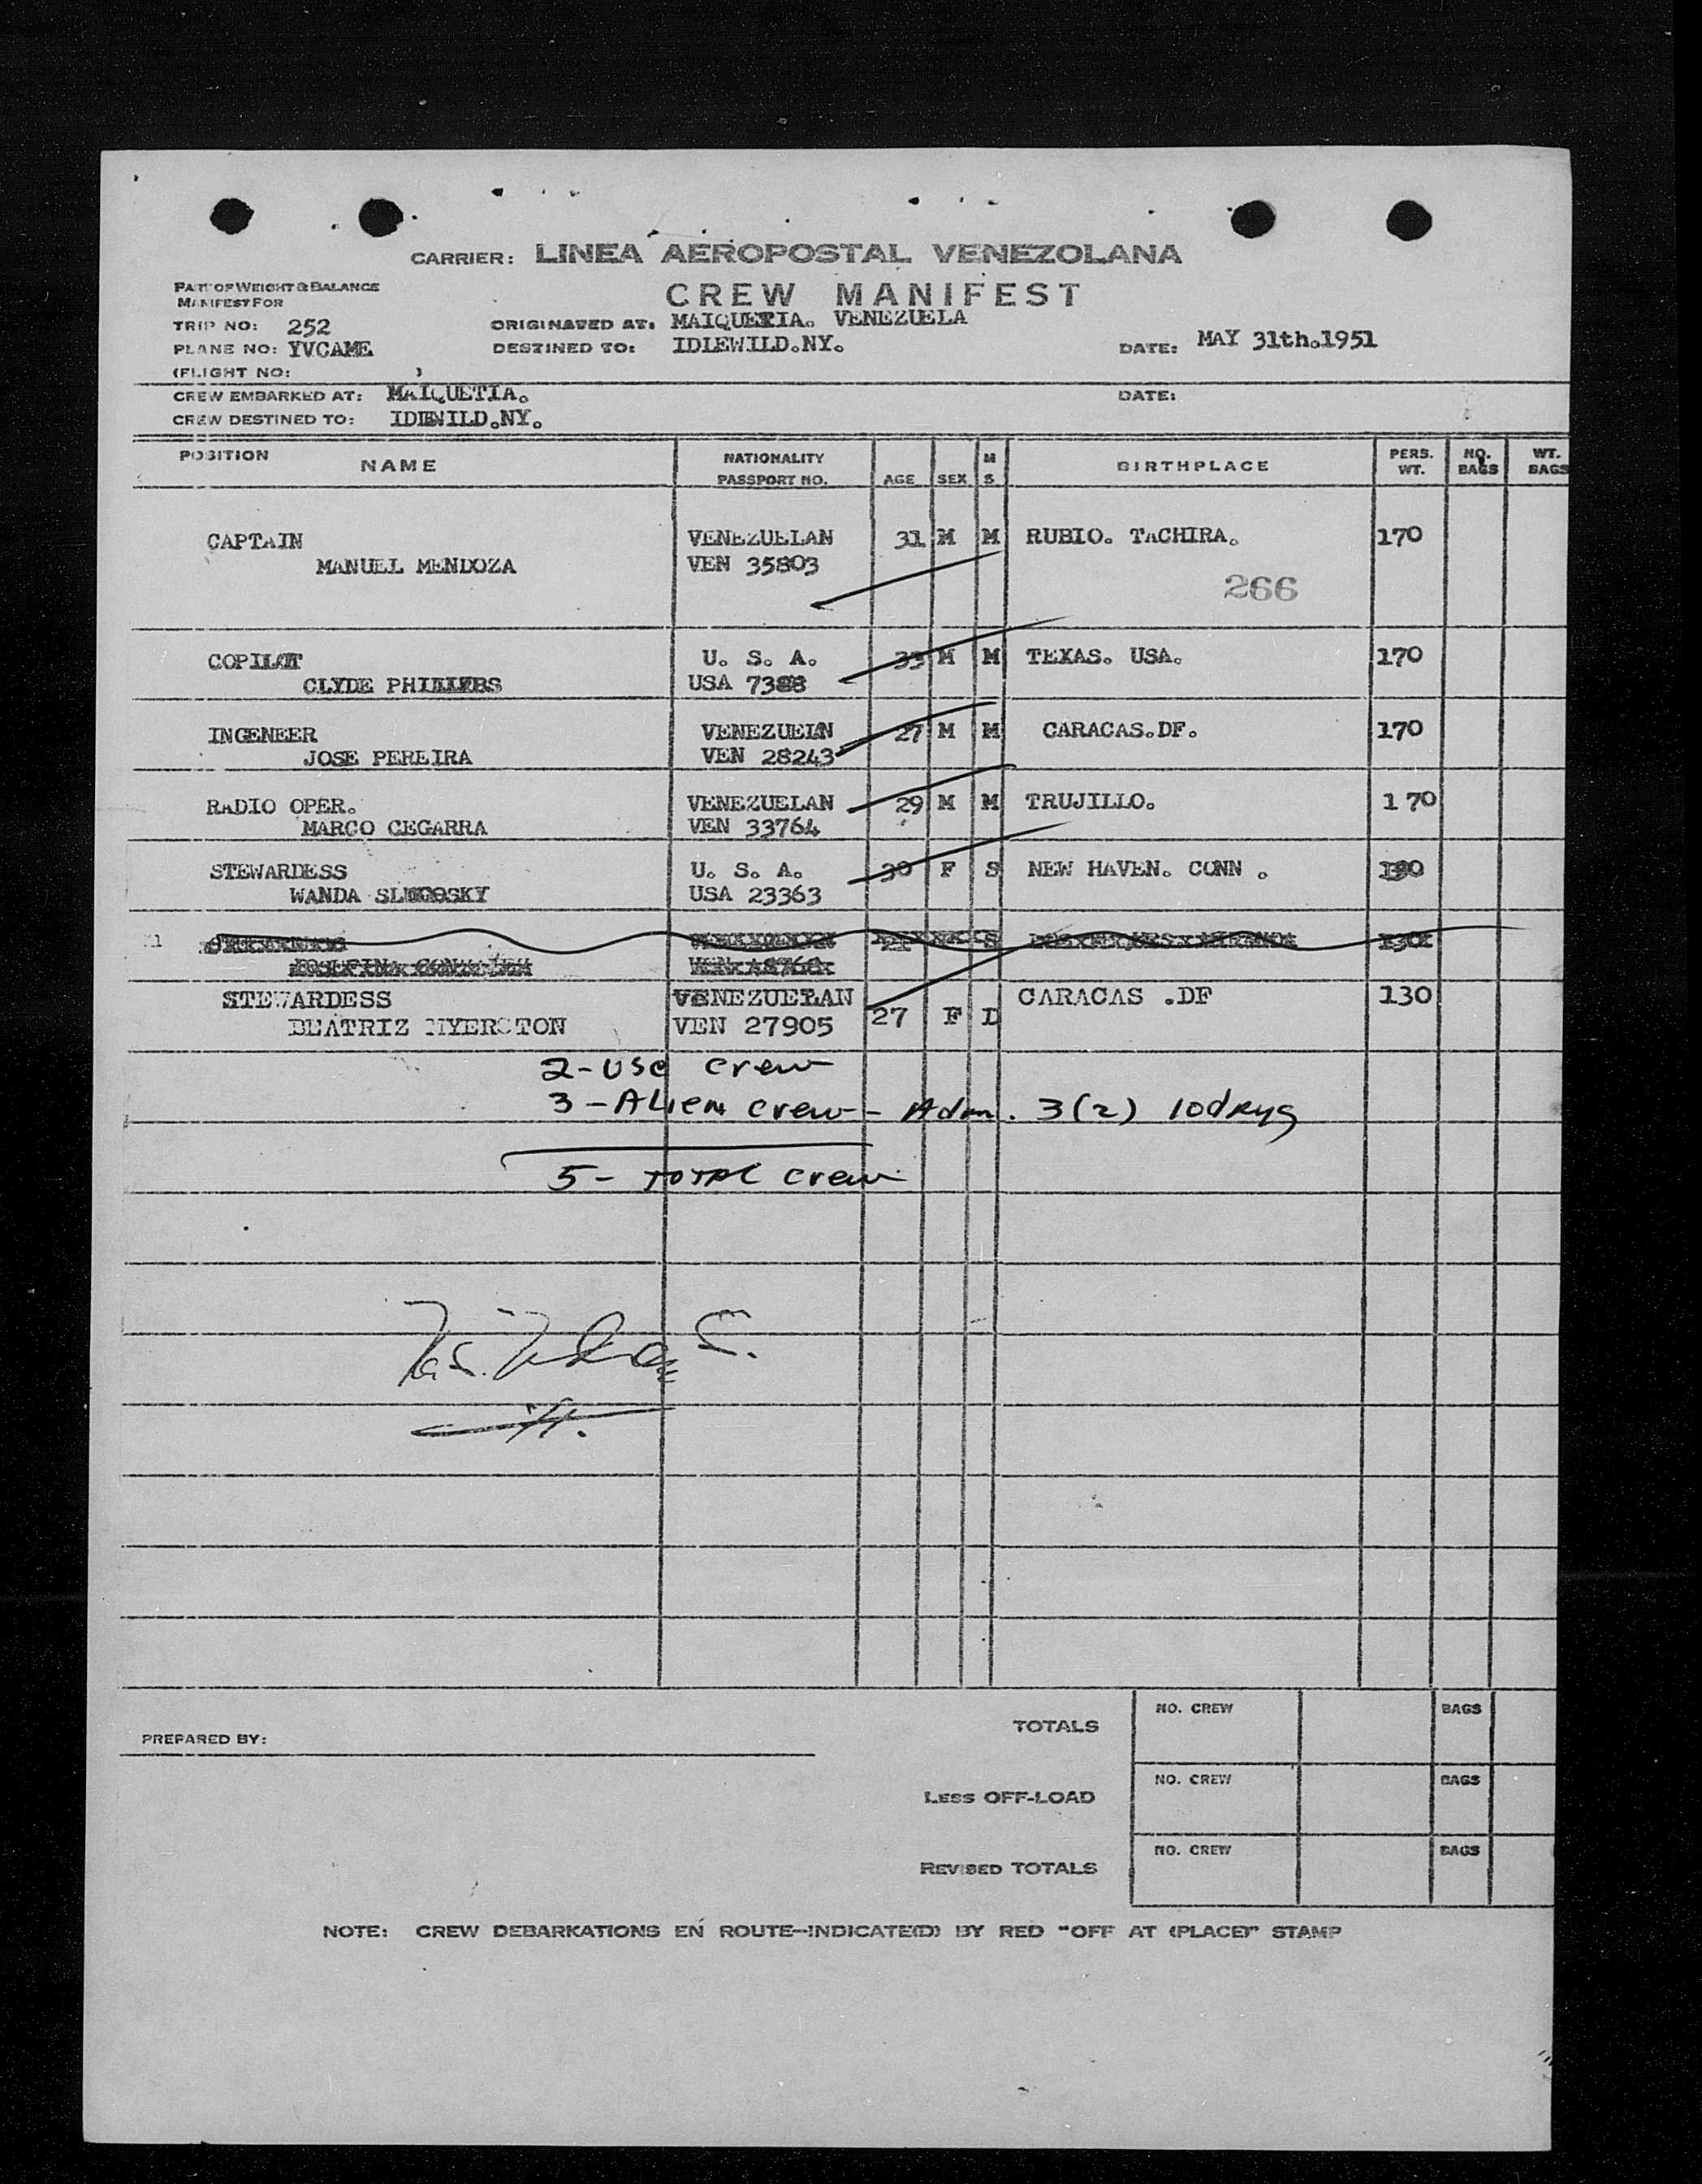 CARRIER: LINEA AEROPOSTAL VENEZOLANA
PART OF WEIGHT & BALANCE
MANIFEST FOR
CREW MANIFEST
TRIP NO: 252 ORIGINATED AT: MAIQUETIA. VENEZUELA
PLANE NO: YVCAME DESTINED TO: IDLEWILD.NY. DATE: MAY 31th.1951
(FLIGHT NO: )
CREW EMBARKED AT: MAIQUETIA. DATE:
CREW DESTINED TO: IDEWILD.NY.
POSITION NAME NATIONALITY PASSPORT NO. AGE SEX M S BIRTHPLACE PERS. WT. NO. BAGS WT. BAGS
CAPTAIN VENEZUELAN 31 M M RUBIO. TACHIRA. 170
MANUEL MENDOZA VEN 35803
266
COPILOT U. S. A. 33 M M TEXAS. USA. 170
CLYDE USA 7388
INGENEER VENEZUELN 27 M M CARACAS.DF. 170
JOSE PEREIRA VEN 28243
RADIO OPER. VENEZUELAN 29 M M TRUJILLO. 1 70
MARCO CEGARRA VEN 33764
STEWARDESS U. S. A. 30 F S NEW HAVEN. CONN .
WANDA USA 23363
STEWARDESS VENEZUELAN 27 F D CARACAS .DF 130
BEATRIZ VEN 27905
2-USC crew
3-Alien crew - Adm. 3(2) 10days
5- TOTAL crew
PREPARED BY:
TOTALS NO. CREW BAGS
LESS OFF-LOAD NO. CREW BAGS
REVISED TOTALS NO. CREW BAGS
NOTE: CREW DEBARKATIONS EN ROUTE--INDICATE(D) BY RED "OFF AT (PLACE)" STAMP